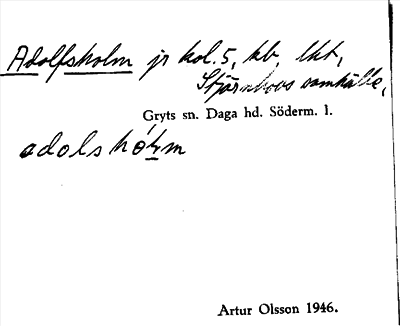 Adolfsholm jr kol. 5, kb, lkt,
Stjärnhovs samhälle,
Gryts sn. Daga hd. Söderm. l.
adolshólm
Artur Olsson 1946.